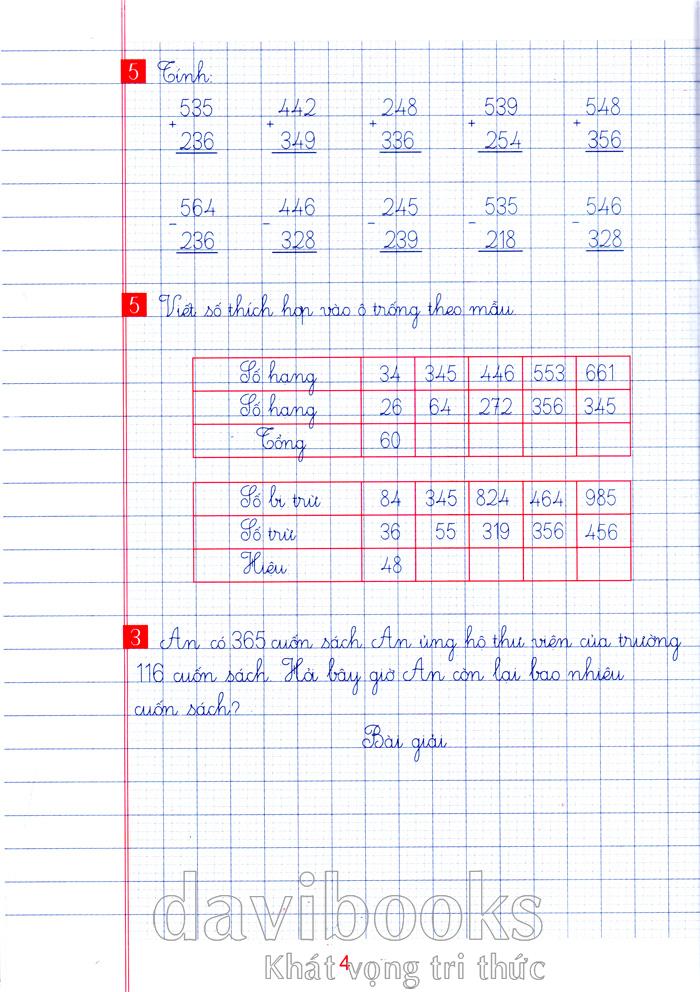 5 Tính:
535 442 248 539 548
+ + + + +
236 349 336 254 356
564 446 245 535 546
- - - - -
236 328 239 218 328
5 Viết số thích hợp vào ô trống theo mẫu
Số hạng 34 345 446 553 661
Số hạng 26 64 272 356 345
Tổng 60
Số bị trừ 84 345 824 464 985
Số trừ 36 55 319 356 456
Hiệu 48
3 An có 365 cuốn sách. An ủng hộ thư viện của trường
116 cuốn sách. Hỏi bây giờ An còn lại bao nhiêu
cuốn sách?
Bài giải
davibooks
Khát vọng tri thức
4